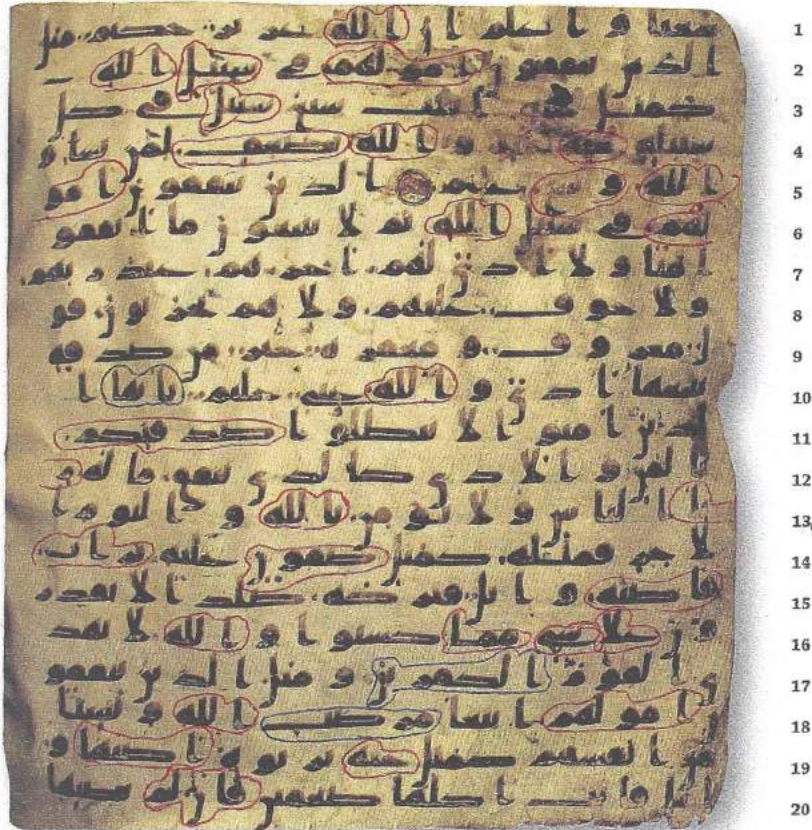 سعيا و اعلم ان الله عزيز حكيم مثل 1
الذين ينفقون امولهم في سبيل الله 2
كمثل حبة انبتت سبع سنبل في كل 3
سنبلة مئة حبة والله يضعف لمن يشا و 4
الله وسع عليم الذين ينفقون امو 5
لهم في سبيل الله ثم لا يتبعون ما انفقو 6
ا منا ولا اذى لهم اجرهم عند ربهم 7
ولا خوف عليهم ولا هم يحزنون قو 8
ل معروف و مغفرة خير من صدقة 9
يتبعها اذى والله غني حليم يايها ا 10
لذين امنوا لا تبطلوا صدقتكم 11
بالمن والاذى كالذي ينفق ماله ر 12
يا الناس ولا يومن بالله واليوم ا 13
لاخر فمثله كمثل صفون عليه تراب 14
فاصبه وابل فتركه صلدا لا يقدر 15
ون على شي مما كسبوا والله لا يهد 16
ي القوم الكفرين ومثل الذين ينفقو 17
ن امولهم ابتغا مرضت الله وتثبيتا 18
من انفسهم كمثل جنة بربوة اصبها و 19
ابل فاتت اكلها ضعفين فان لم يصبها 20